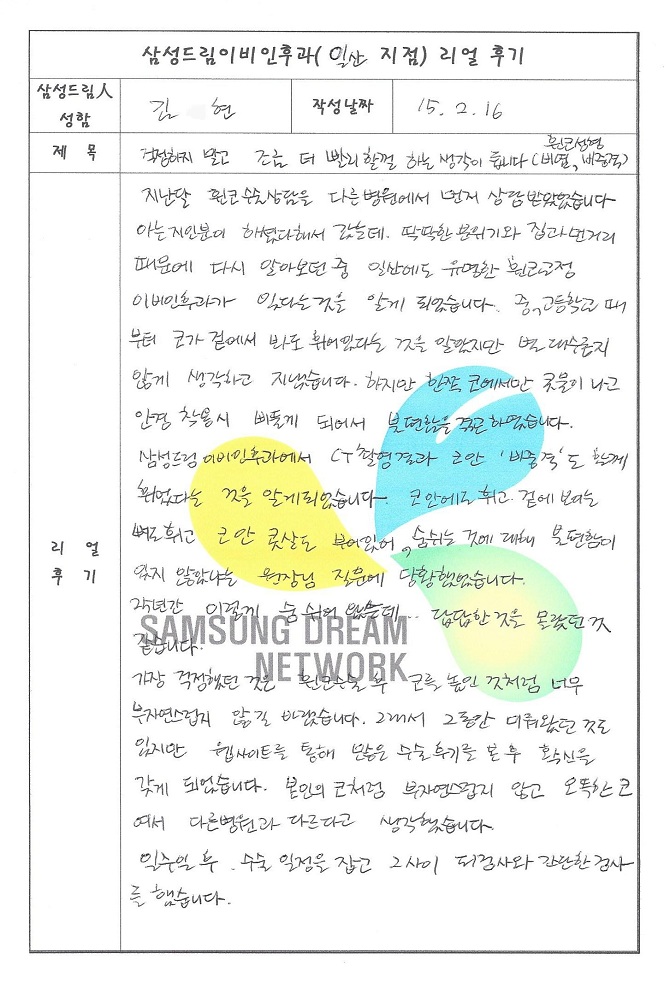 삼성드림이비인후과( 일산 지점) 리얼 후기
삼성드림人 성함
김 현
작성날짜
15. 2. 16
제 목
걱정하지 말고 조금 더 빨리할걸 하는 생각이 듭니다 (휜코성형 (비염, 비중격)
리 얼
후 기
지난달 휜코수술상담을 다른병원에서 먼저 상담받았었습니다
아는지인분이 하셨다해서 갔는데. 딱딱한 분위기와 집과 먼거리
때문에 다시 알아보던 중 일산에도 유명한 휜코교정
이비인후과가 있다는것을 알게 되었습니다. 중,고등학교 때
부터 코가 겉에서 봐도 휘어있다는 것을 알았지만 별 대수롭지
않게 생각하고 지냈습니다. 하지만 한쪽 코에서만 콧물이 나고
안경 착용시 삐뚤게 되어서 불편함을 겪곤하였습니다.
삼성드림이비인후과에서 CT촬영결과 코안 '비중격'도 함께
휘었다는 것을 알게되었습니다. 코안에도 휘고. 겉에 보이는
뼈도휘고 코안 콧살도 부어있어, 숨쉬는 것에 대해 불편함이
있지 않았냐는 원장님 질문에 당황했었습니다.
25년간 이렇게 숨 쉬어 왔는데... 답답한것을 몰랐던것
같습니다.
SAMSUNG DREAM
NETWORK
가장 걱정했던 것은 휜코수술 후 코를 높인 것처럼 너무
부자연스럽지 않길 바랬습니다. 그래서 그동안 미뤄왔던 것도
있지만 웹사이트를 통해 많은 수술후기를 본 후 확신을
갖게 되었습니다. 본인의 코처럼 부자연스럽지 않고 오똑한 코
여서 다른병원과 다르다고 생각했습니다.
일주일 후. 수술 일정을 잡고 그사이 피검사와 간단한 검사
를 했습니다.